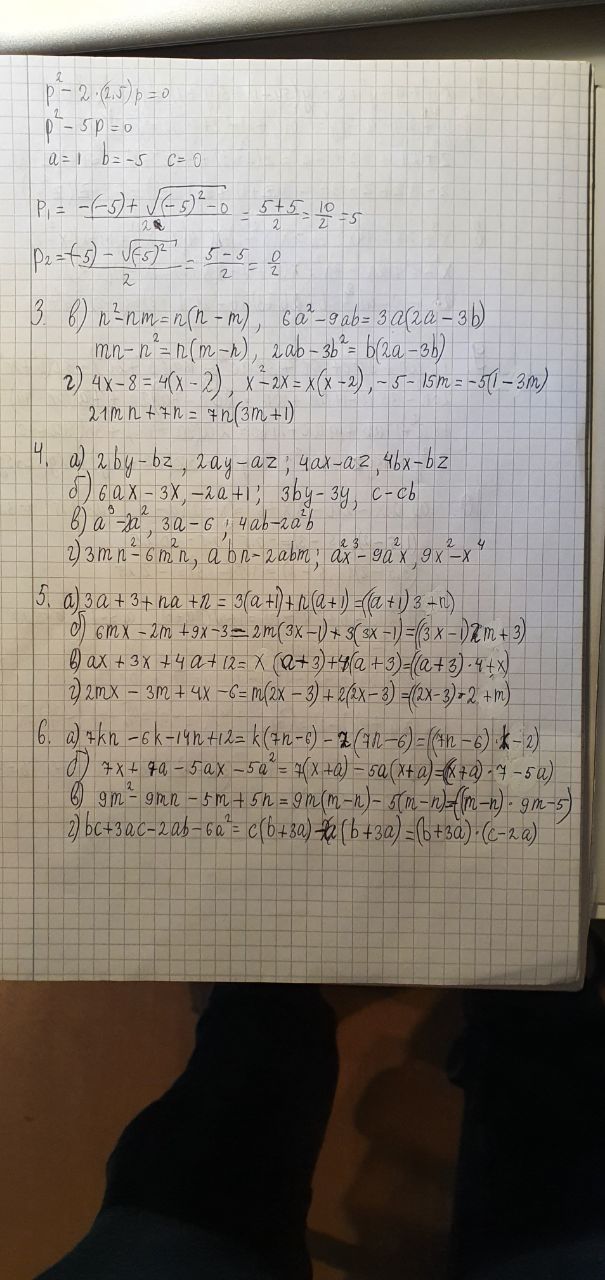 p² - 2·(2,5)p = 0
p² - 5p = 0
a = 1 b = -5 c = 0
p₁ = (-(-5) + √((-5)² - 0))/2 = (5+5)/2 = 10/2 = 5
p₂ = (-(-5) - √((-5)²))/2 = (5-5)/2 = 0/2
3. в) n² - nm = n(n - m), 6a² - 9ab = 3a(2a - 3b)
mn - n² = n(m - n), 2ab - 3b² = b(2a - 3b)
г) 4x - 8 = 4(x - 2), x² - 2x = x(x - 2), -5 - 15m = -5(1 - 3m)
21mn + 7n = 7n(3m + 1)
4. а) 2by - bz, 2ay - az; 4ax - az, 4bx - bz
б) 6ax - 3x, -2a + 1; 3by - 3y, c - cb
в) a³ - 2a², 3a - 6; 4ab - 2a²b
г) 3mn² - 6m²n, abn - 2abm; ax²³ - 9a²x, 9x² - x⁴
5. а) 3a + 3 + na + n = 3(a+1) + n(a+1) = ((a+1) 3 + n)
б) 6mx - 2m + 9x - 3 = 2m(3x - 1) + 3(3x - 1) = ((3x - 1) 2m + 3)
в) ax + 3x + 4a + 12 = x(a+3) + 4(a+3) = ((a+3)·4 + x)
г) 2mx - 3m + 4x - 6 = m(2x - 3) + 2(2x - 3) = ((2x - 3)·2 + m)
6. а) 7kn - 6k - 14n + 12 = k(7n - 6) - 2(7n - 6) = ((7n - 6)·k - 2)
б) 7x + 7a - 5ax - 5a² = 7(x+a) - 5a(x+a) = ((x+a)·7 - 5a)
в) 9m² - 9mn - 5m + 5n = 9m(m-n) - 5(m-n) = ((m-n)·9m - 5)
г) bc + 3ac - 2ab - 6a² = c(b+3a) - 2a(b+3a) = (b+3a)·(c - 2a)